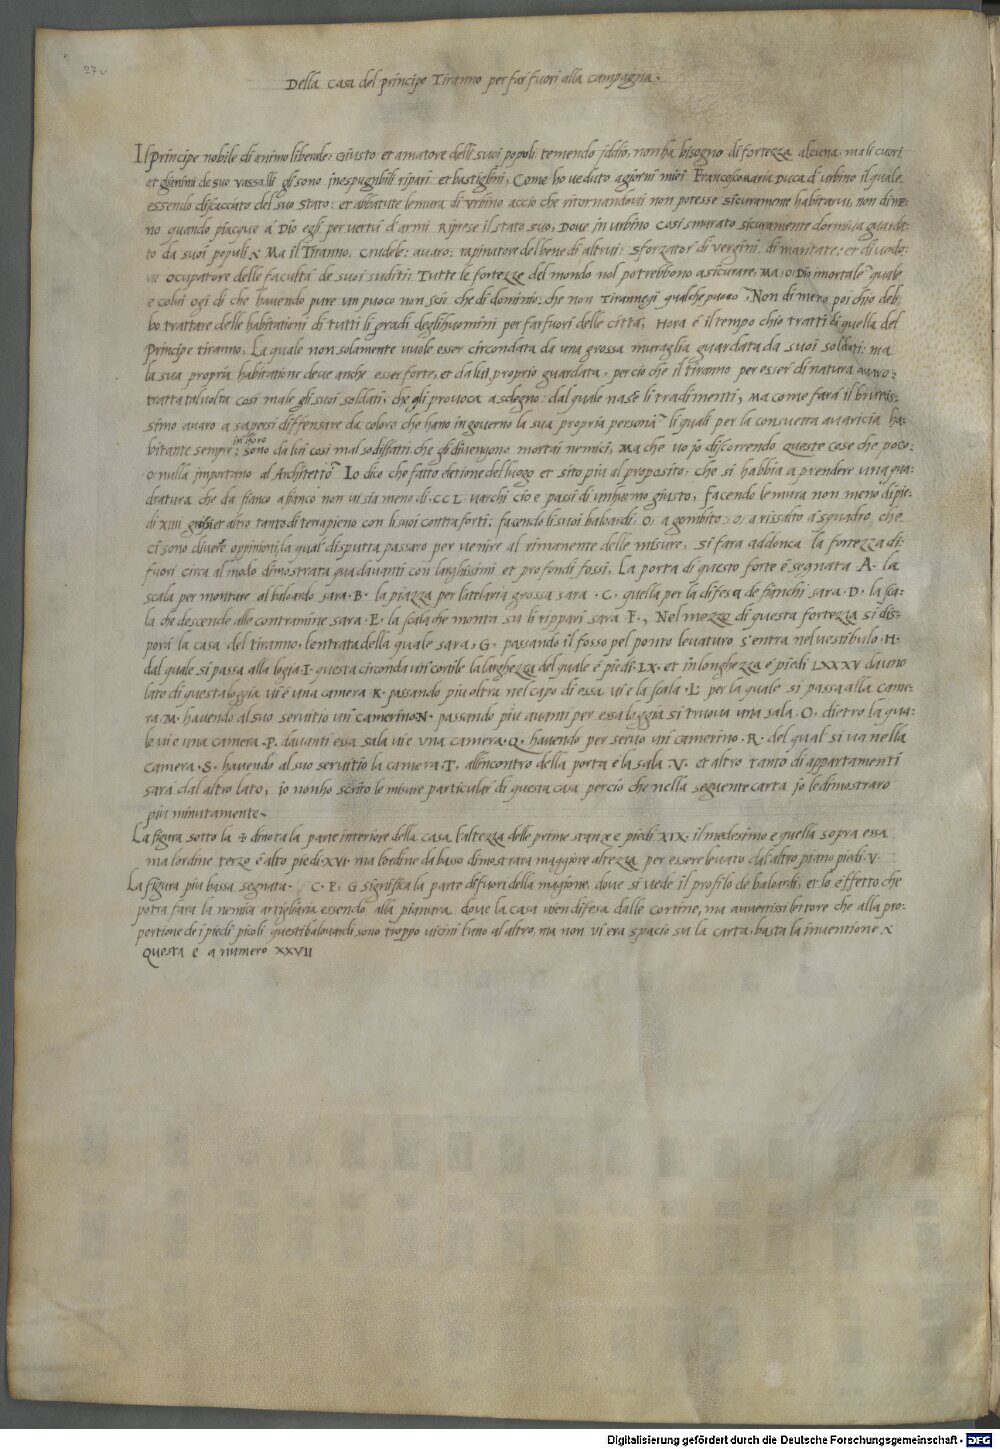 27v
Della casa del principe Tiranno per far fuori alla campagna.
Il principe nobile di animo liberale: Giusto et amatore delli suoi popoli temendo iddio, non ha bisogno di fortezza alcuna, ma li cuori
et gl'animi de suo vassalli gli sono inespugnibili ripari et bastiglini, Come ho veduto a giorni miei Francesco maria Duca d'urbino il quale
essendo discacciato del suo stato: et abbatute le mura di urbino accio che ritornandovi non potesse sicuramente habitarvi, non dime=
no quando piacque a Dio egli per vertu d'armi Riprese il stato suo, Dove in urbino cosi smurato sicuramente dormiva guarda=
to da suoi populi & Ma il Tiranno, crudele: avaro: rapinatore del bene di altrui: sforzator di vergini: di maritate: et di vedo=
ve occupatore delle facultà de suoi suditi: Tutte le fortezze del mondo nol potrebbono asicurare, MA: o Dio imortale quale
e colui ogi di che havendo pure un puoco non scio che di dominio: che non tirannegi qualche puoco, Non di meno poi ch'io deb
bo trattare delle habitationi di tutti li gradi degl'huomini per far fuori delle città, Hora è il tempo ch'io tratti di quella del
principe tiranno, La quale non solamente vuole esser circondata da una grossa muraglia guardata da suoi soldati: ma
la sua propria habitatione deve anche esser forte, et da lui proprio guardata. percio che il tiranno per esser di natura avaro:
tratta tal volta cosi male gli suoi soldati, che gli provoca a sdegno: dal quale nasce li tradimenti, Ma come farà il brutis=
simo avaro a sapersi diffensare da coloro che hano in governo la sua propria persona li quali per la consuetta avaricia ha=
bitante sempre in loro sono da lui cosi mal sodisfati che gli divengono mortai nemici, Ma che vo io discorrendo queste cose che poco:
o nulla importano al Architetto Io dico che fatto eletione del luogo et sito piu al proposito: che si habbia a prendere una qua=
dratura che da fianco a fianco non vi sia meno di. CCL. varchi cio e passi di un huomo giusto, facendo le mura non meno di pie=
di XIIII grosi et altro tanto di terrapieno con li suoi contraforti: facendo li suoi baloardi. O, a gombito: o, a rissalto a squadro, che
ci sono diverse oppinioni, la qual disputta passaro per venire al rimanente delle misure, Si fara addonca la fortezza di=
fuori circa al modo dimostrata qua davanti con larghissimi et profondi fossi, La porta di questo forte è segnata A. la
scala per montare al baloardo sara. B. la piazza per l'artelaria grossa sara. C. quella per la difesa de fianchi sara. D. la sca=
la che descende alle contramine sara. E. la scala che monta su li rippari sara F., Nel mezzo di questa fortezza si dis=
porà la casa del tiranno, l'entrata della quale sara, G, passando il fosso pel ponte levaturo s'entra nel vestibulo. H.
dal quale si passa alla logia. I. questa circonda un cortile la larghezza del quale è piedi. LX. et in longhezza è piedi LXXXV da uno
lato di questa loggia vi è una camera K. passando piu oltra nel capo di essa vi e la scala. L. per la quale si passa alla came=
ra. M. havendo al suo servitio un camerino N. passando piu avanti per essa loggia si truova una sala. O. dietro la qua=
le vi e una camera. P. davanti essa sala vi e una camera. Q. havendo per servo un camerino. R. del qual si va nella
camera. S. havendo al suo servitio la camera. T. all'incontro della porta è la sala. V. et altro tanto di appartamenti
sarà dal altro lato, io non ho scrito le misure particular di questa casa percio che nella seguente carta io le dimostraro
piu minutamente.
La figura sotto la ✠ dinota la parte interiore della casa. l'altezza delle prime stanze e piedi XIX. il medesimo e quella sopra essa
ma l'ordine terzo è alto piedi. XVI. ma l'ordine da basso dimostrara maggiore altezza per essere levato dal altro piano piedi. V
La figura piu bassa segnata. C. F. G significa la parte di fuori della magione, dove si vede il profilo de baloardi, et lo effetto che
potra fara la nemica artigliaria essendo alla pianura dove la casa vien difesa dalle cortine, ma avvertissi lettore che alla pro=
portione de i piedi picoli questi balouardi sono troppo vicini l'uno al altro, ma non vi era spacio su la carta, basta la inventione &
Questa e a numero XXVII
Digitalisierung gefördert durch die Deutsche Forschungsgemeinschaft - DFG